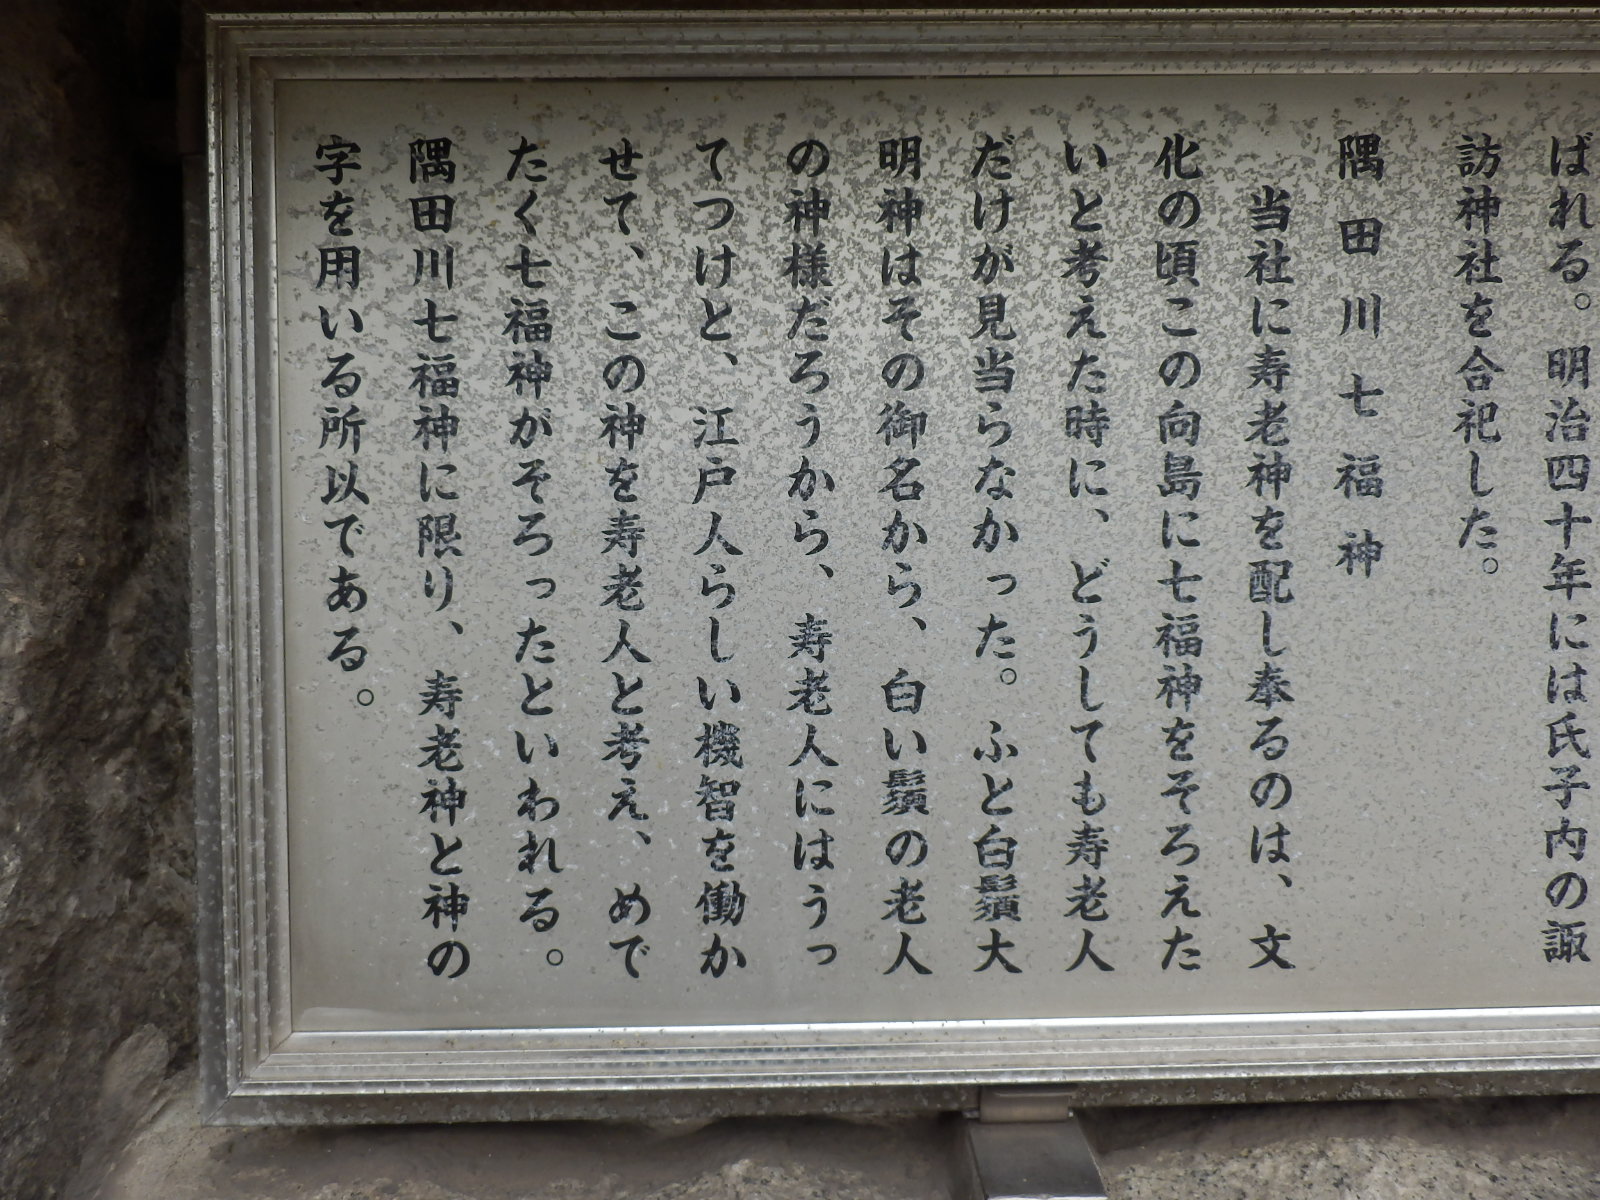 ばれる。明治四十年には氏子内の諏
訪神社を合祀した。
隅田川七福神
当社に寿老神を配し奉るのは、文
化の頃この向島に七福神をそろえた
いと考えた時に、どうしても寿老人
だけが見当らなかった。ふと白鬚大
明神はその御名から、白い鬚の老人
の神様だろうから、寿老人にはうっ
てつけと、江戸人らしい機智を働か
せて、この神を寿老人と考え、めで
たく七福神がそろったといわれる。
隅田川七福神に限り、寿老神と神の
字を用いる所以である。